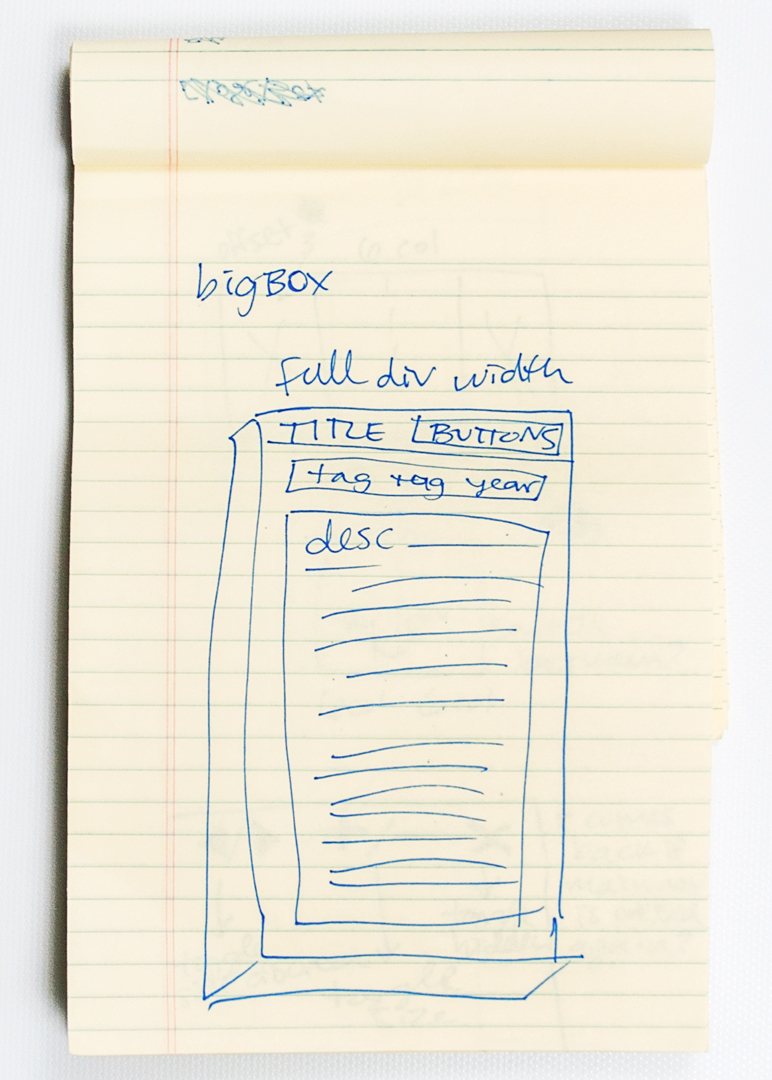 bigBOX
full div width
TITLE BUTTONS
tag tag year
desc